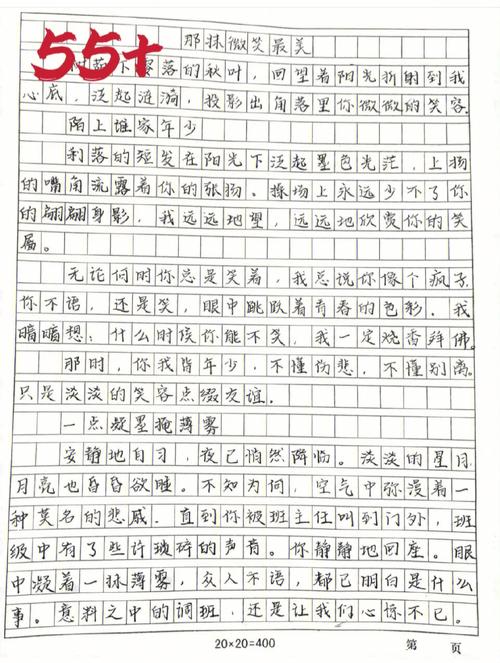 55+
那抹微笑最美
落的秋叶，回望着阳光折射到我
心底，泛起涟漪，投影出角落里你微微的笑容。
陌上谁家年少
利落的短发在阳光下泛起墨色光茫，上扬
的嘴角流露着你的张扬。操场上永远少不了你
的翩翩身影，我远远地望，远远地欣赏你的笑
靥。
无论何时你总是笑着，我总说你像个疯子，
你不语，还是笑，眼中跳跃着青春的色彩。我
暗暗想：什么时候你能不笑，我一定烧香拜佛。
那时，你我皆年少，不懂伤悲，不懂别离。
只是淡淡的笑容点缀友谊。
一点凝墨掩薄雾
安静地自习，夜已悄然降临。淡淡的星月
月亮也昏昏欲睡。不知为何，空气中弥漫着一
种莫名的悲戚。直到你被班主任叫到门外，班
级中有了些许琐碎的声音。你静静地回座。眼
中凝着一抹薄雾，众人不语，都已明白是什么
事。意料之中的调班，还是让我们心惊不已。
20×20=400
第 页